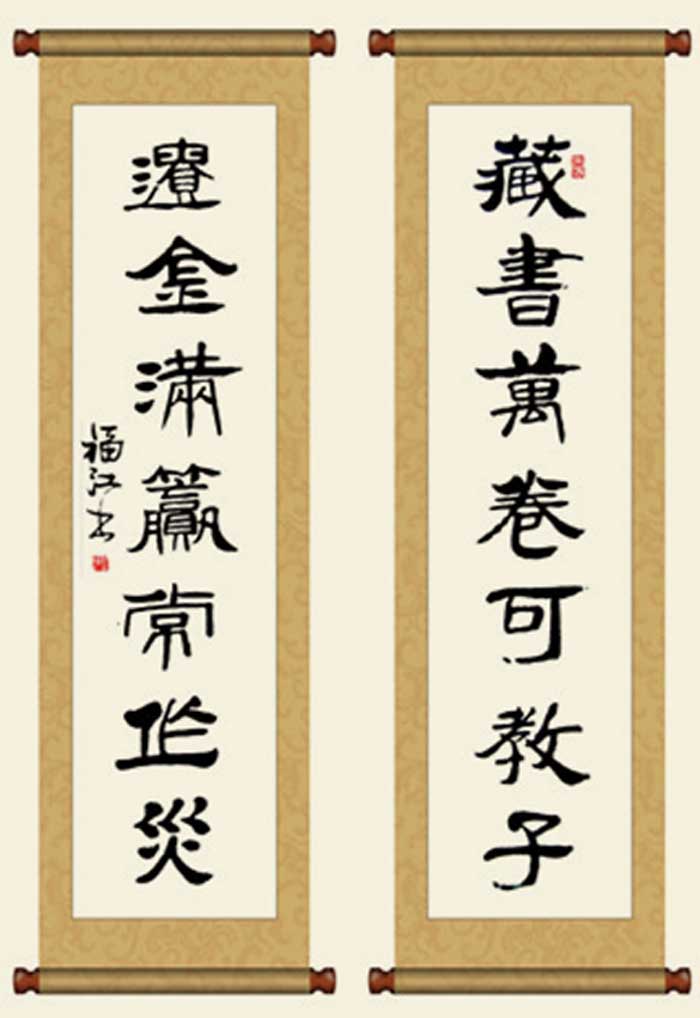 藏書萬卷可教子
遺金滿籯常作災
福江书